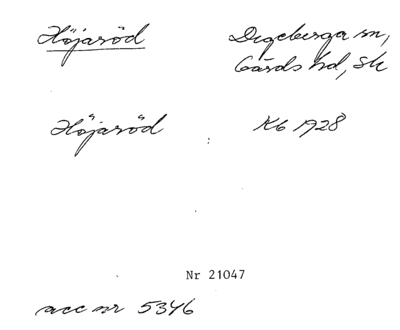 Höjaröd Degeberga sn,
Gärds hd, Sk
Höjaröd Kb 1928
Nr 21047
acc nr 5346